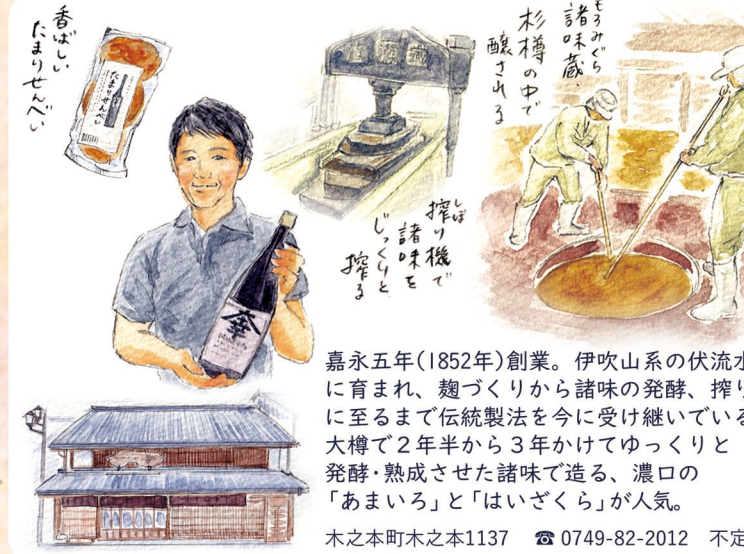 香ばしい
たまりせんべい
たまりせんべい
もろみぐら
諸味蔵・
杉樽の中で
醸される
しぼ
搾り機で
諸味を
じっくりと
搾る
嘉永五年(1852年)創業。伊吹山系の伏流水
に育まれ、麹づくりから諸味の発酵、搾り
に至るまで伝統製法を今に受け継いでいる
大樽で2年半から3年かけてゆっくりと
発酵・熟成させた諸味で造る、濃口の
「あまいろ」と「はいざくら」が人気。
木之本町木之本1137 ☎0749-82-2012 不定